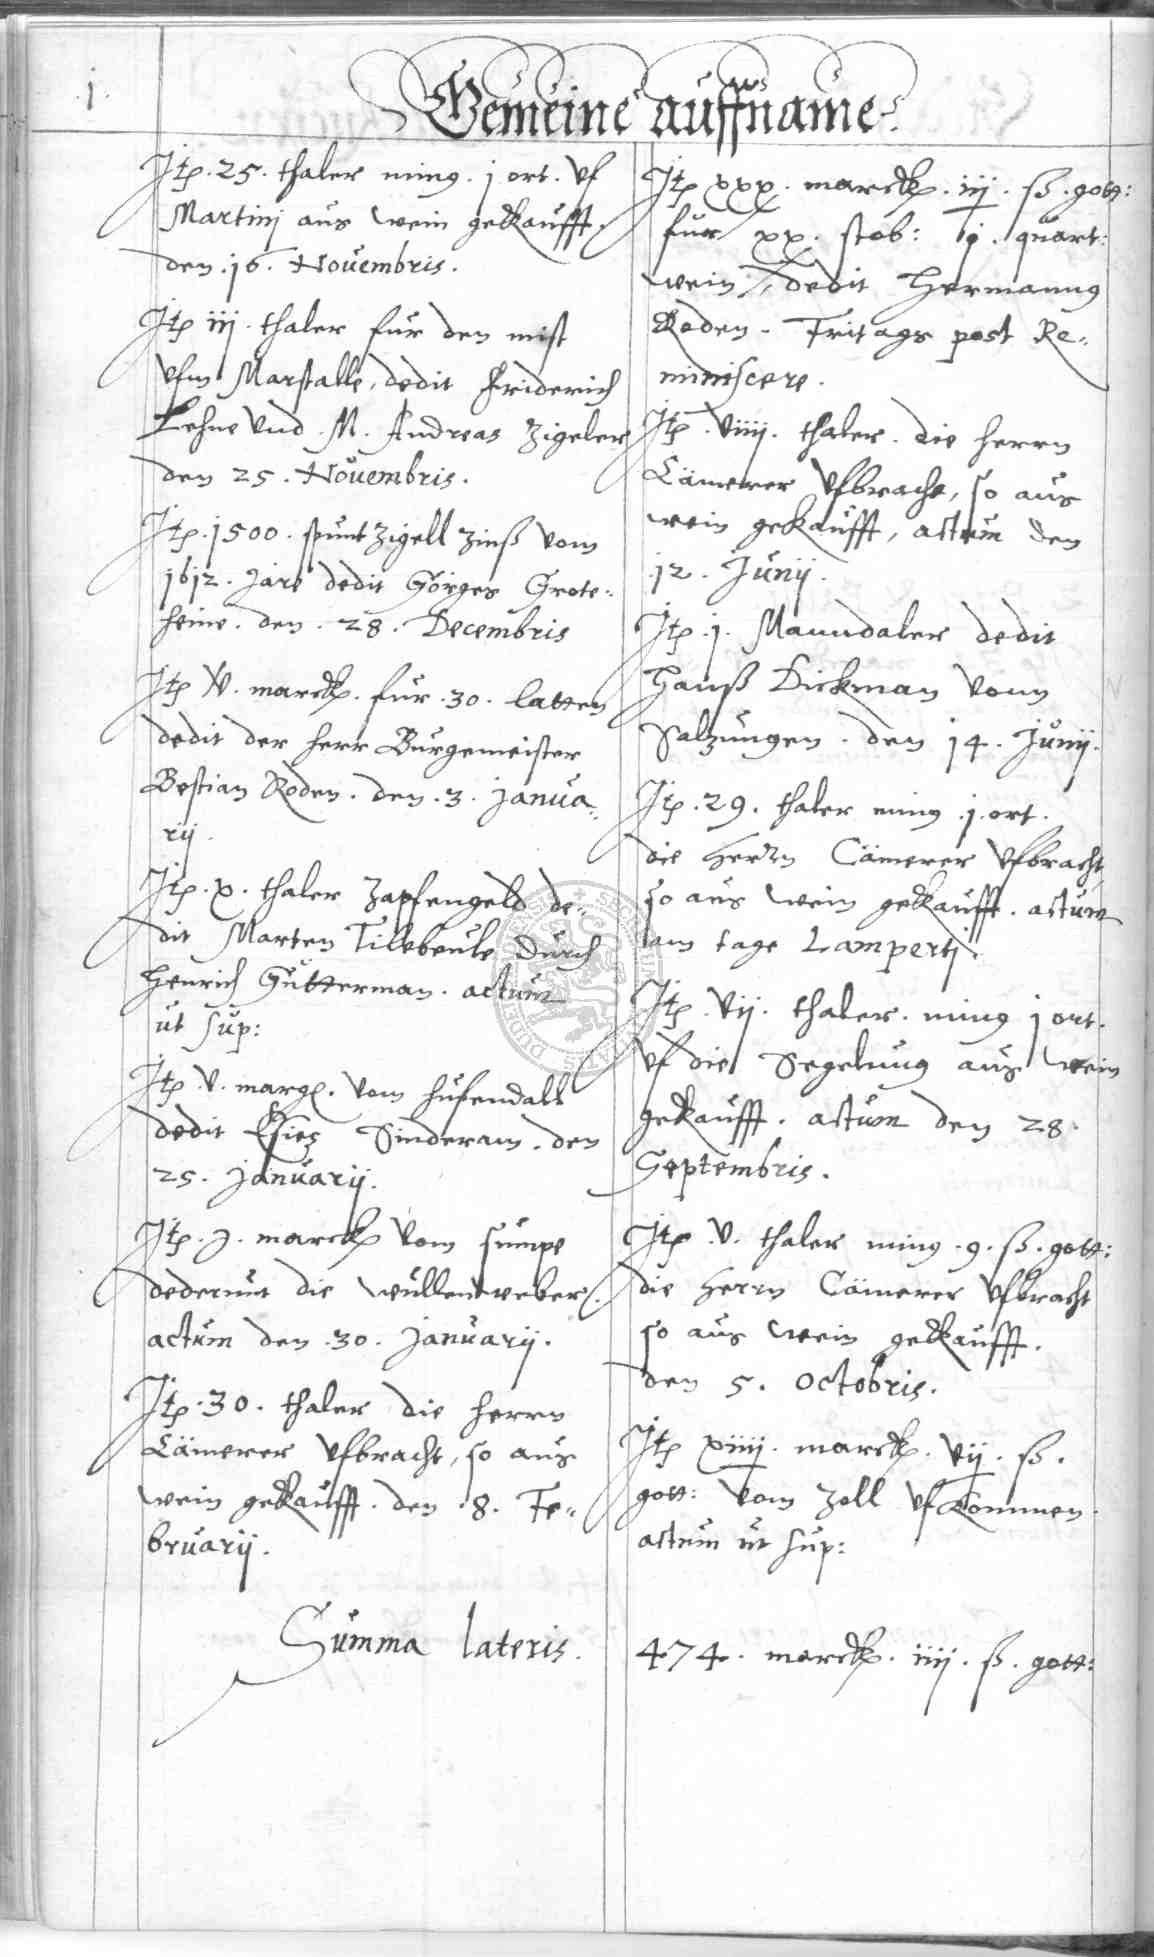 .j.
Gemeine auffname.
Jtp. 25. thaler ming. j ort. vf
Martinj aus wein gekaufft.
den .16. Nouembris.
Jtp iij. thaler fur den mist
vfm Marstalle, dedit Friderich
Lehne vnd M. Andreas Zigeler
den 25. Nouembris.
Jtp. 1500. spunt Zigell Zinß vom
1612. Jare dedit Görges Grote-
heine. den. 28. Decembris
Jtp V. marck. fur .30. latten
dedit der herr Burgemeister
Bestian Roden. den .3. Janua-
rij.
Jtp. x. thaler Zapfengeld de-
dit Marten Tilebeule Durch
Henrich Gutterman. actum
ut sup:
Jtp V. marg. vom hufendall
dedit Sinderam. den
25. Januarij.
Jtp. j. marck vom sumpe
dederunt die wullenweber.
actum den .30. Januarij.
Jtp. 30. thaler die herrn
Cämerer vfbracht, so aus
wein gekaufft. den .8. Fe-
bruarij.
Jtp xxx. marck. iij. ß. gott:
fur xx. stob: j. quart:
wein, dedit Hermanng
Roden. Fritags post Re-
miniscere.
Jtp. viiij. thaler. die herrn
Cämerer vfbracht, so aus
wein gekaufft, actum den
.12. Junij.
Jtp. j. Maundaler dedit
Hanß Dickman vonn
Salzungen. den 14. Junij.
Jtp. 29. thaler ming .j. ort.
die Herrn Cämerer vfbracht,
so aus wein gekaufft. actum
am tage Lampertj.
Jtp. Vij. thaler. ming j ort.
vf die Segelung aus wein
gekaufft. actum den 28.
Septembris.
Jtp. V. thaler ming .9. ß. gott:
die Herrn Cämerer vfbracht
so aus wein gekaufft.
den 5. Octobris.
Jtp xiiij. marck. vij. ß.
gott: vom Zoll vfkommen.
actum ut sup:
Summa lateris. 474. marck. iiij. ß. gott: